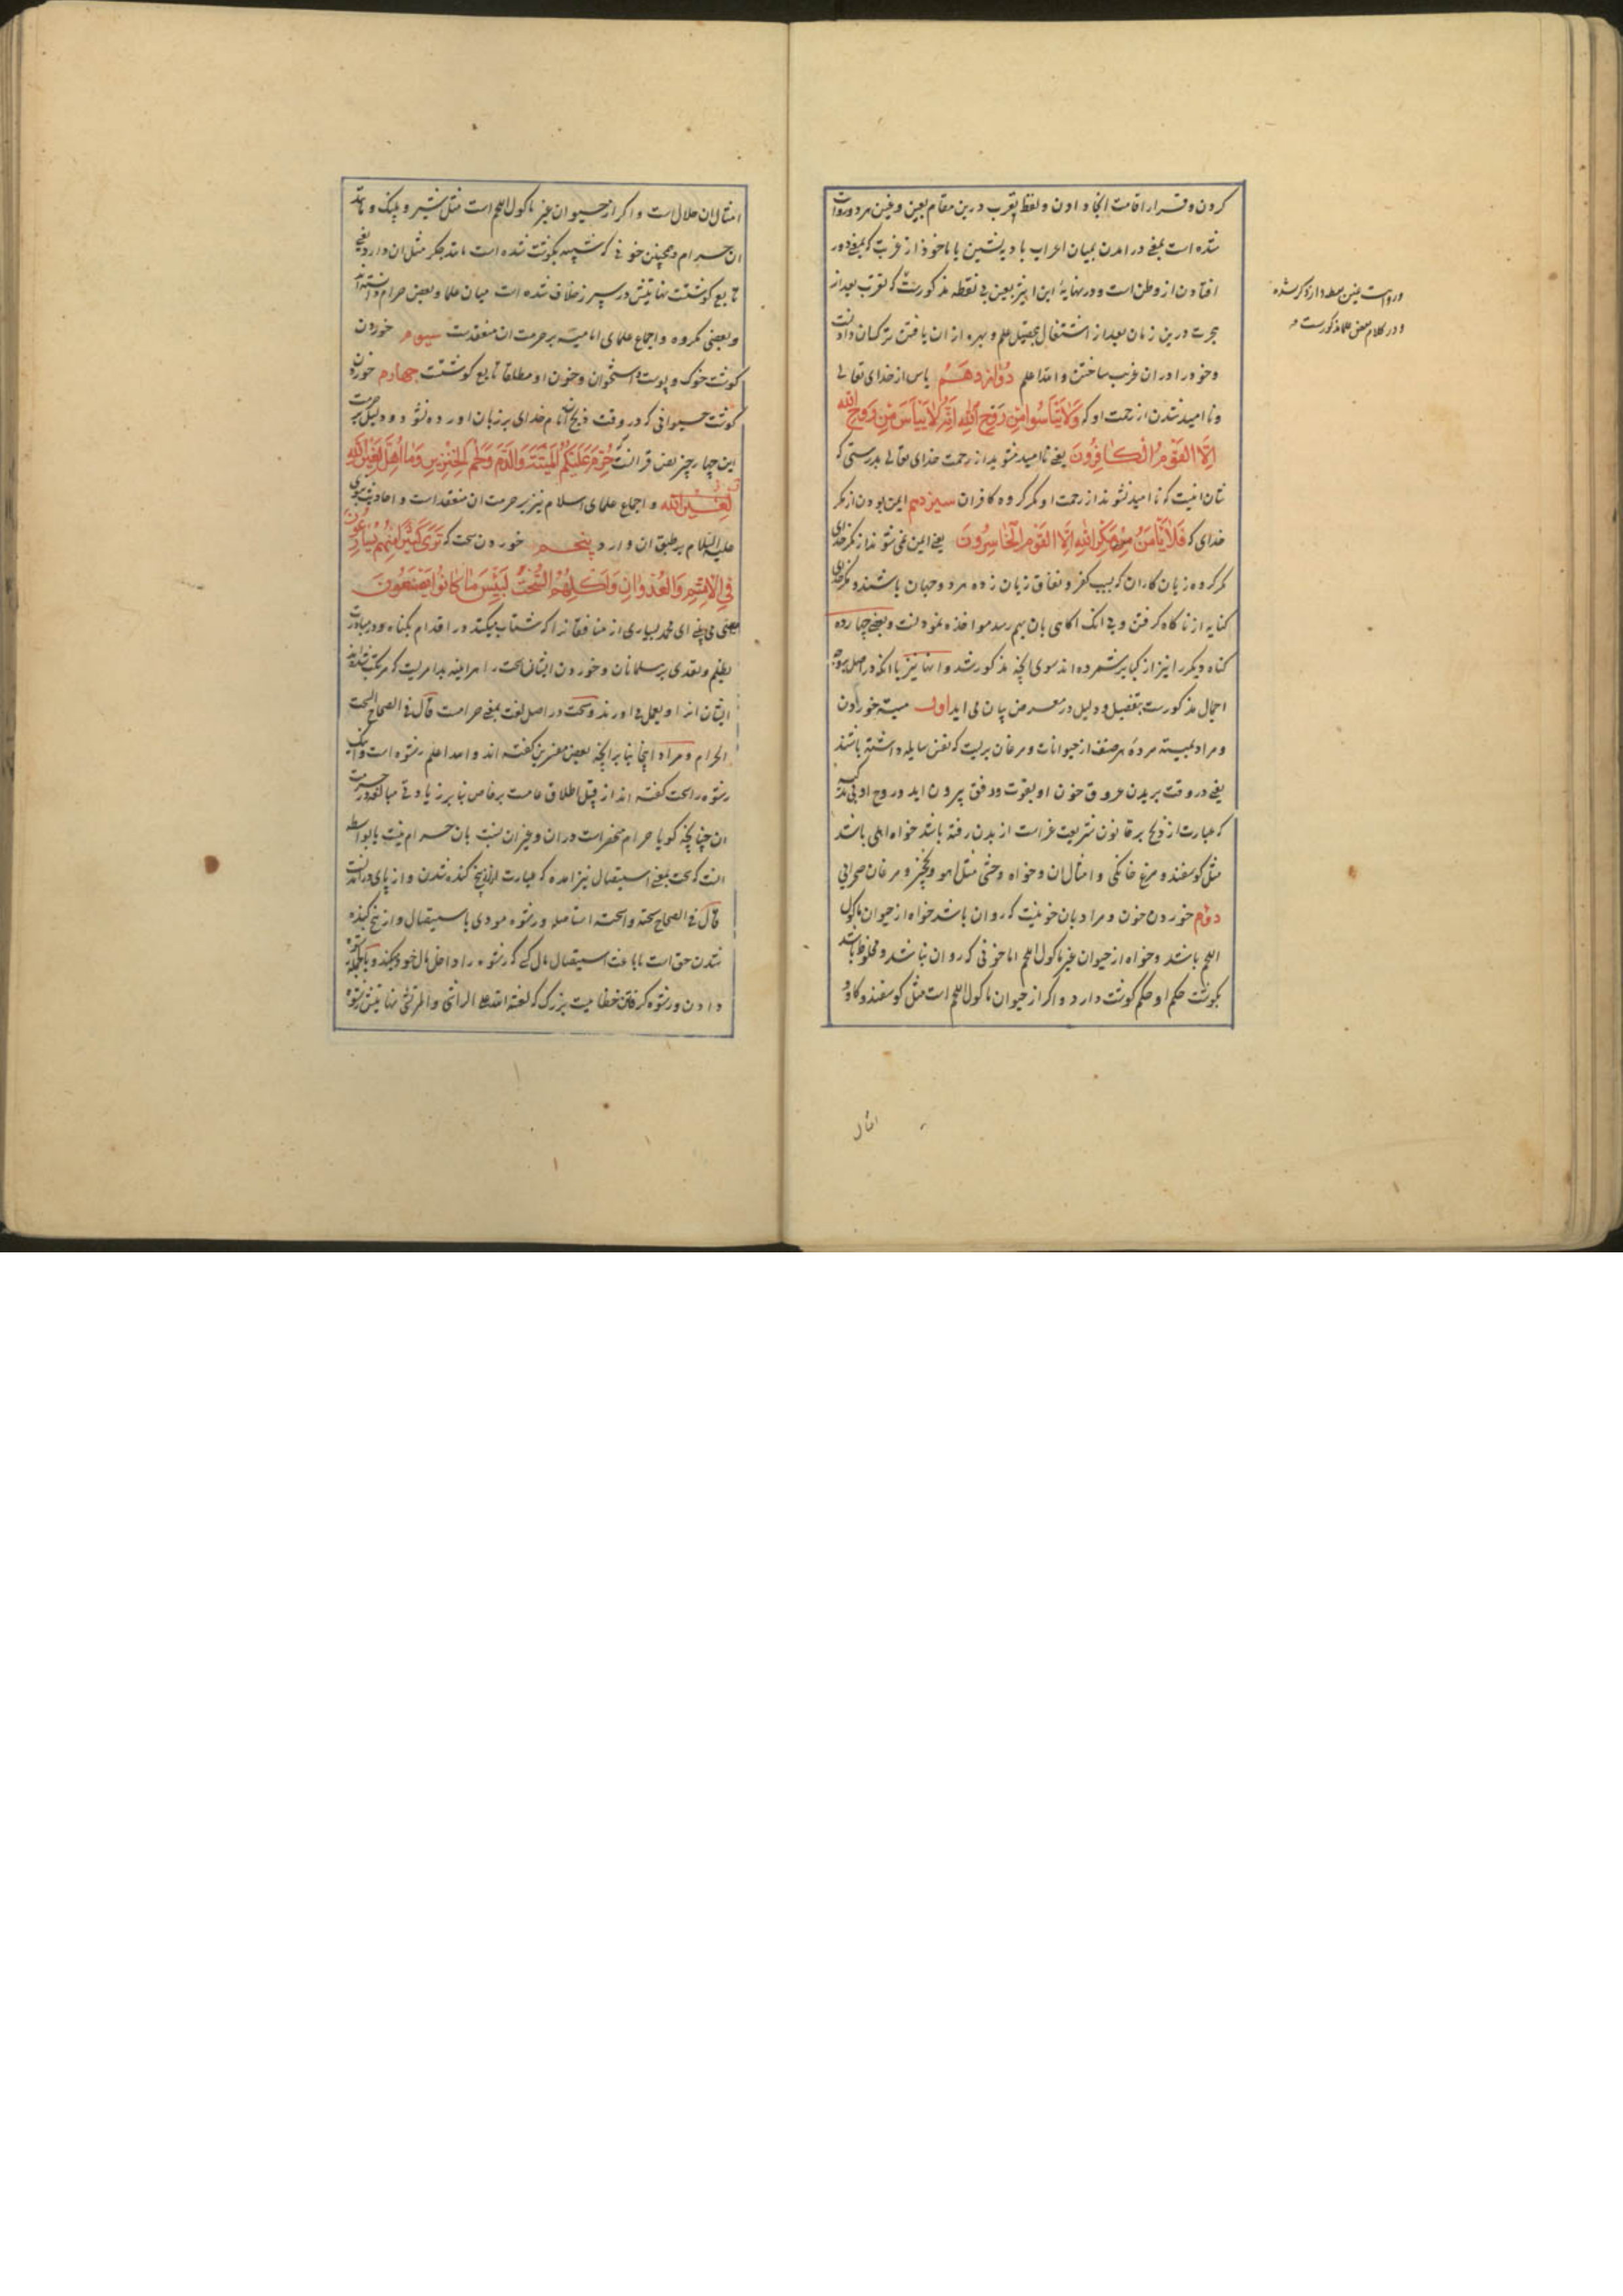 کردن و قرار اقامت انجا دادن و لفظ تعرب درین مقام بعین و غین هر دو روایت
شده است بمعنی در امدن بمیان اعراب بادیه نشین یا ماخوذ از غربت که بمعنی دور
افتادن از وطن است و در نهایهٔ ابن اثیر بعین بی نقطه مذکورست که تعرب بعد از
هجرت درین زمان بعد از اشتغال بتحصیل علم و بهره از ان یافتن ترکسان دادنست
و خود را در ان غریب ساختن و الله اعلم دوازدهم یاس از خدای تعالی
و نا امید شدن از رحمت او که وَلَا تَيْأَسُوا مِنْ رَوْحِ اللهِ اِنَّهُ لَا يَيْأَسُ مِنْ رَوْحِ الله
اِلَّا الْقَوْمُ الْكَافِرُونَ یعنی نا امید مشوید از رحمت خدای تعالی بدرستی که
شان اینست که نا امید نشوند از رحمت او مگر گروه کافران سیزدهم ایمن بودن از مکر
خدای که فَلَا يَأْمَنُ مَكْرَ اللهِ اِلَّا الْقَوْمُ الْخَاسِرُونَ یعنی ایمن نمی شوند از مکر خدای
مگر گروه زیان کاران که بسبب کفر و نفاق زیان زده هر دو جهان باشند و مکر خدای
کنایه از ناگاه گرفتن و بی انک اگاهی بان بهم رسد مواخذه نمودنست و بعضی چهارده
کناه دیکر را نیز از کبایر شمرده اند سوی انچه مذکور شد و انها نیز با انکه در اصل بیوجه
اجمال مذکورست بتفصیل و دلیل در معرض بیان می اید اول میته خوردن
و مراد بمیته مردهٔ هر صنف از حیوانات و مرغان بریست که نفس سایله داشته باشند
یعنی در وقت بریدن عروق خون او بقوت و دفق بیرون اید و روح او بی تذکیه
که عبارت از ذبح بر قانون شریعت غراست از بدن رفته باشد خواه اهلی باشد
مثل کوسفند و مرغ خانگی و امثال ان و خواه وحشی مثل اهو و نخجیر و مرغان صحرایی
دوم خوردن خون و مراد بان خونیست که روان باشد خواه از حیوان ماکول
اللحم باشد و خواه از حیوان غیر ماکول اللحم اما خونی که روان نباشد و مخلوط باشد
بکوشت حکم او حکم کوشت دارد و اکر از حیوان ماکول اللحم است مثل کوسفند و کاو و
و در کلام بعض علما مذکورست
امثال
امثال ان حلال است و اکر از حیوان غیر ماکول اللحم است مثل شیر و پلنک و مانند
ان حرام و همچنین خونی که شبیه بکوشت شده است مانند جکر مثل ان دارد یعنی
تابع کوشتست نهایتش در سپرز خلاف شده است میان علما و بعضی حرام دانسته اند
و بعضی مکروه و اجماع علمای امامیه بر حرمت ان منعقدست سیوم خوردن
کوشت خوک و پوست و استخوان و خون او مطلقا تابع کوشتست چهارم خوردن
کوشت حیوانی که در وقت ذبح ان نام خدای بر زبان اورده نشود و دلیل بر حرمت
این چهار چیز نص قرانست که حُرِّمَتْ عَلَيْكُمُ الْمَيْتَةُ وَالدَّمُ وَلَحْمُ الْخِنْزِيرِ وَمَا اُهِلَّ لِغَيْرِ اللهِ
لِغَيْرِ الله و اجماع علمای اسلام نیز بر حرمت ان منعقد است و احادیث نبوی
علیه السلام بر طبق ان وارد پنجم خوردن سحت که تَرَى كَثِيرًا مِنْهُمْ يُسَارِعُونَ
فِي الْاِثْمِ وَالْعُدْوَانِ وَاَكْلِهِمُ السُّحْتَ لَبِئْسَ مَا كَانُوا يَصْنَعُونَ
یعنی می بینی ای محمد بسیاری از منافقانرا که شتاب میکنند در اقدام بکناه و در مبادرت
بظلم و تعدی بر مسلمانان و خوردن ایشان سحت را هر اینه بد امریست که مرتکب شده اند
ایشان انرا و بعمل می اورند و سحت در اصل لغت بمعنی حرامست قال فی الصحاح السحت
الحرام و مراد اینجا بنا بر انچه بعضی مفسرین کفته اند و الله اعلم رشوه است و انک
رشوه را سحت کفته اند از قبیل اطلاق عامست بر خاص بنا بر زیادتی مبالغه در حرمت
ان چنانچه کویا حرام منحصرست در ان و غیر ان نسبت بان حرام نیست یا بواسطه
انست که سحت بمعنی استیصال نیز امده که عبارت از بیخ کنده شدن و از پای در امدنست
قال فی الصحاح سحته و اسحته استاصله و رشوه مودی باستیصال و از بیخ کنده
شدن حق است یا باعث استیصال مال کسی که رشوه را داخل مال خود میکند و بالجمله رشوه
دادن و رشوه گرفتن خطاییست بزرک که لعنة الله علی الراشی و المرتشی نهایتش رشوه